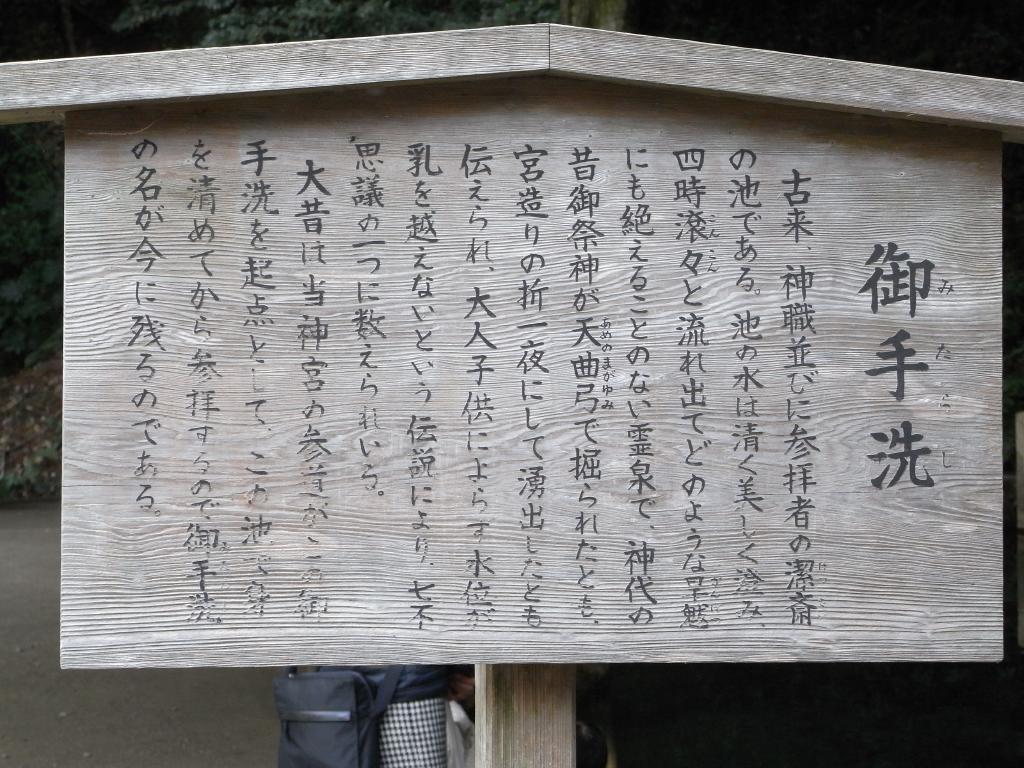 御手洗
みたらし
古来、神職並びに参拝者の潔斎
の池である。池の水は清く美しく澄み、
四時滾々と流れ出てどのような旱魃
にも絶えることのない霊泉で、神代の
昔御祭神が天曲弓で掘られたとも、
宮造りの折一夜にして湧出したとも
伝えられ、大人子供によらず水位が
乳を越えないという伝説により、七不
思議の一つに数えられいる。
大昔は当神宮の参道がこの御
手洗を起点として、この池で身
を清めてから参拝するので、御手洗
の名が今に残るのである。